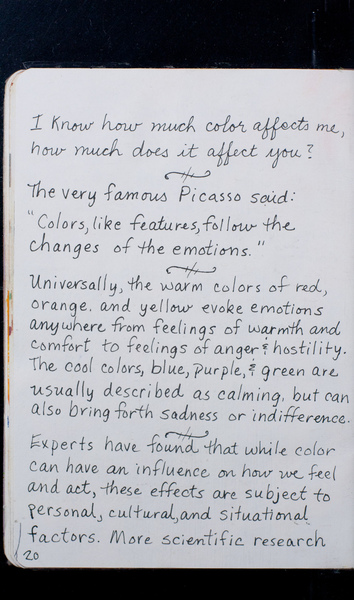 I know how much color affects me,
how much does it affect you?
The very famous Picasso said:
"Colors, like features, follow the
changes of the emotions."
Universally, the warm colors of red,
orange. and yellow evoke emotions
anywhere from feelings of warmth and
comfort to feelings of anger & hostility.
The cool colors, blue, purple, & green are
usually described as calming, but can
also bring forth sadness or indifference.
Experts have found that while color
can have an influence on how we feel
and act, these effects are subject to
personal, cultural, and situational
factors. More scientific research
20